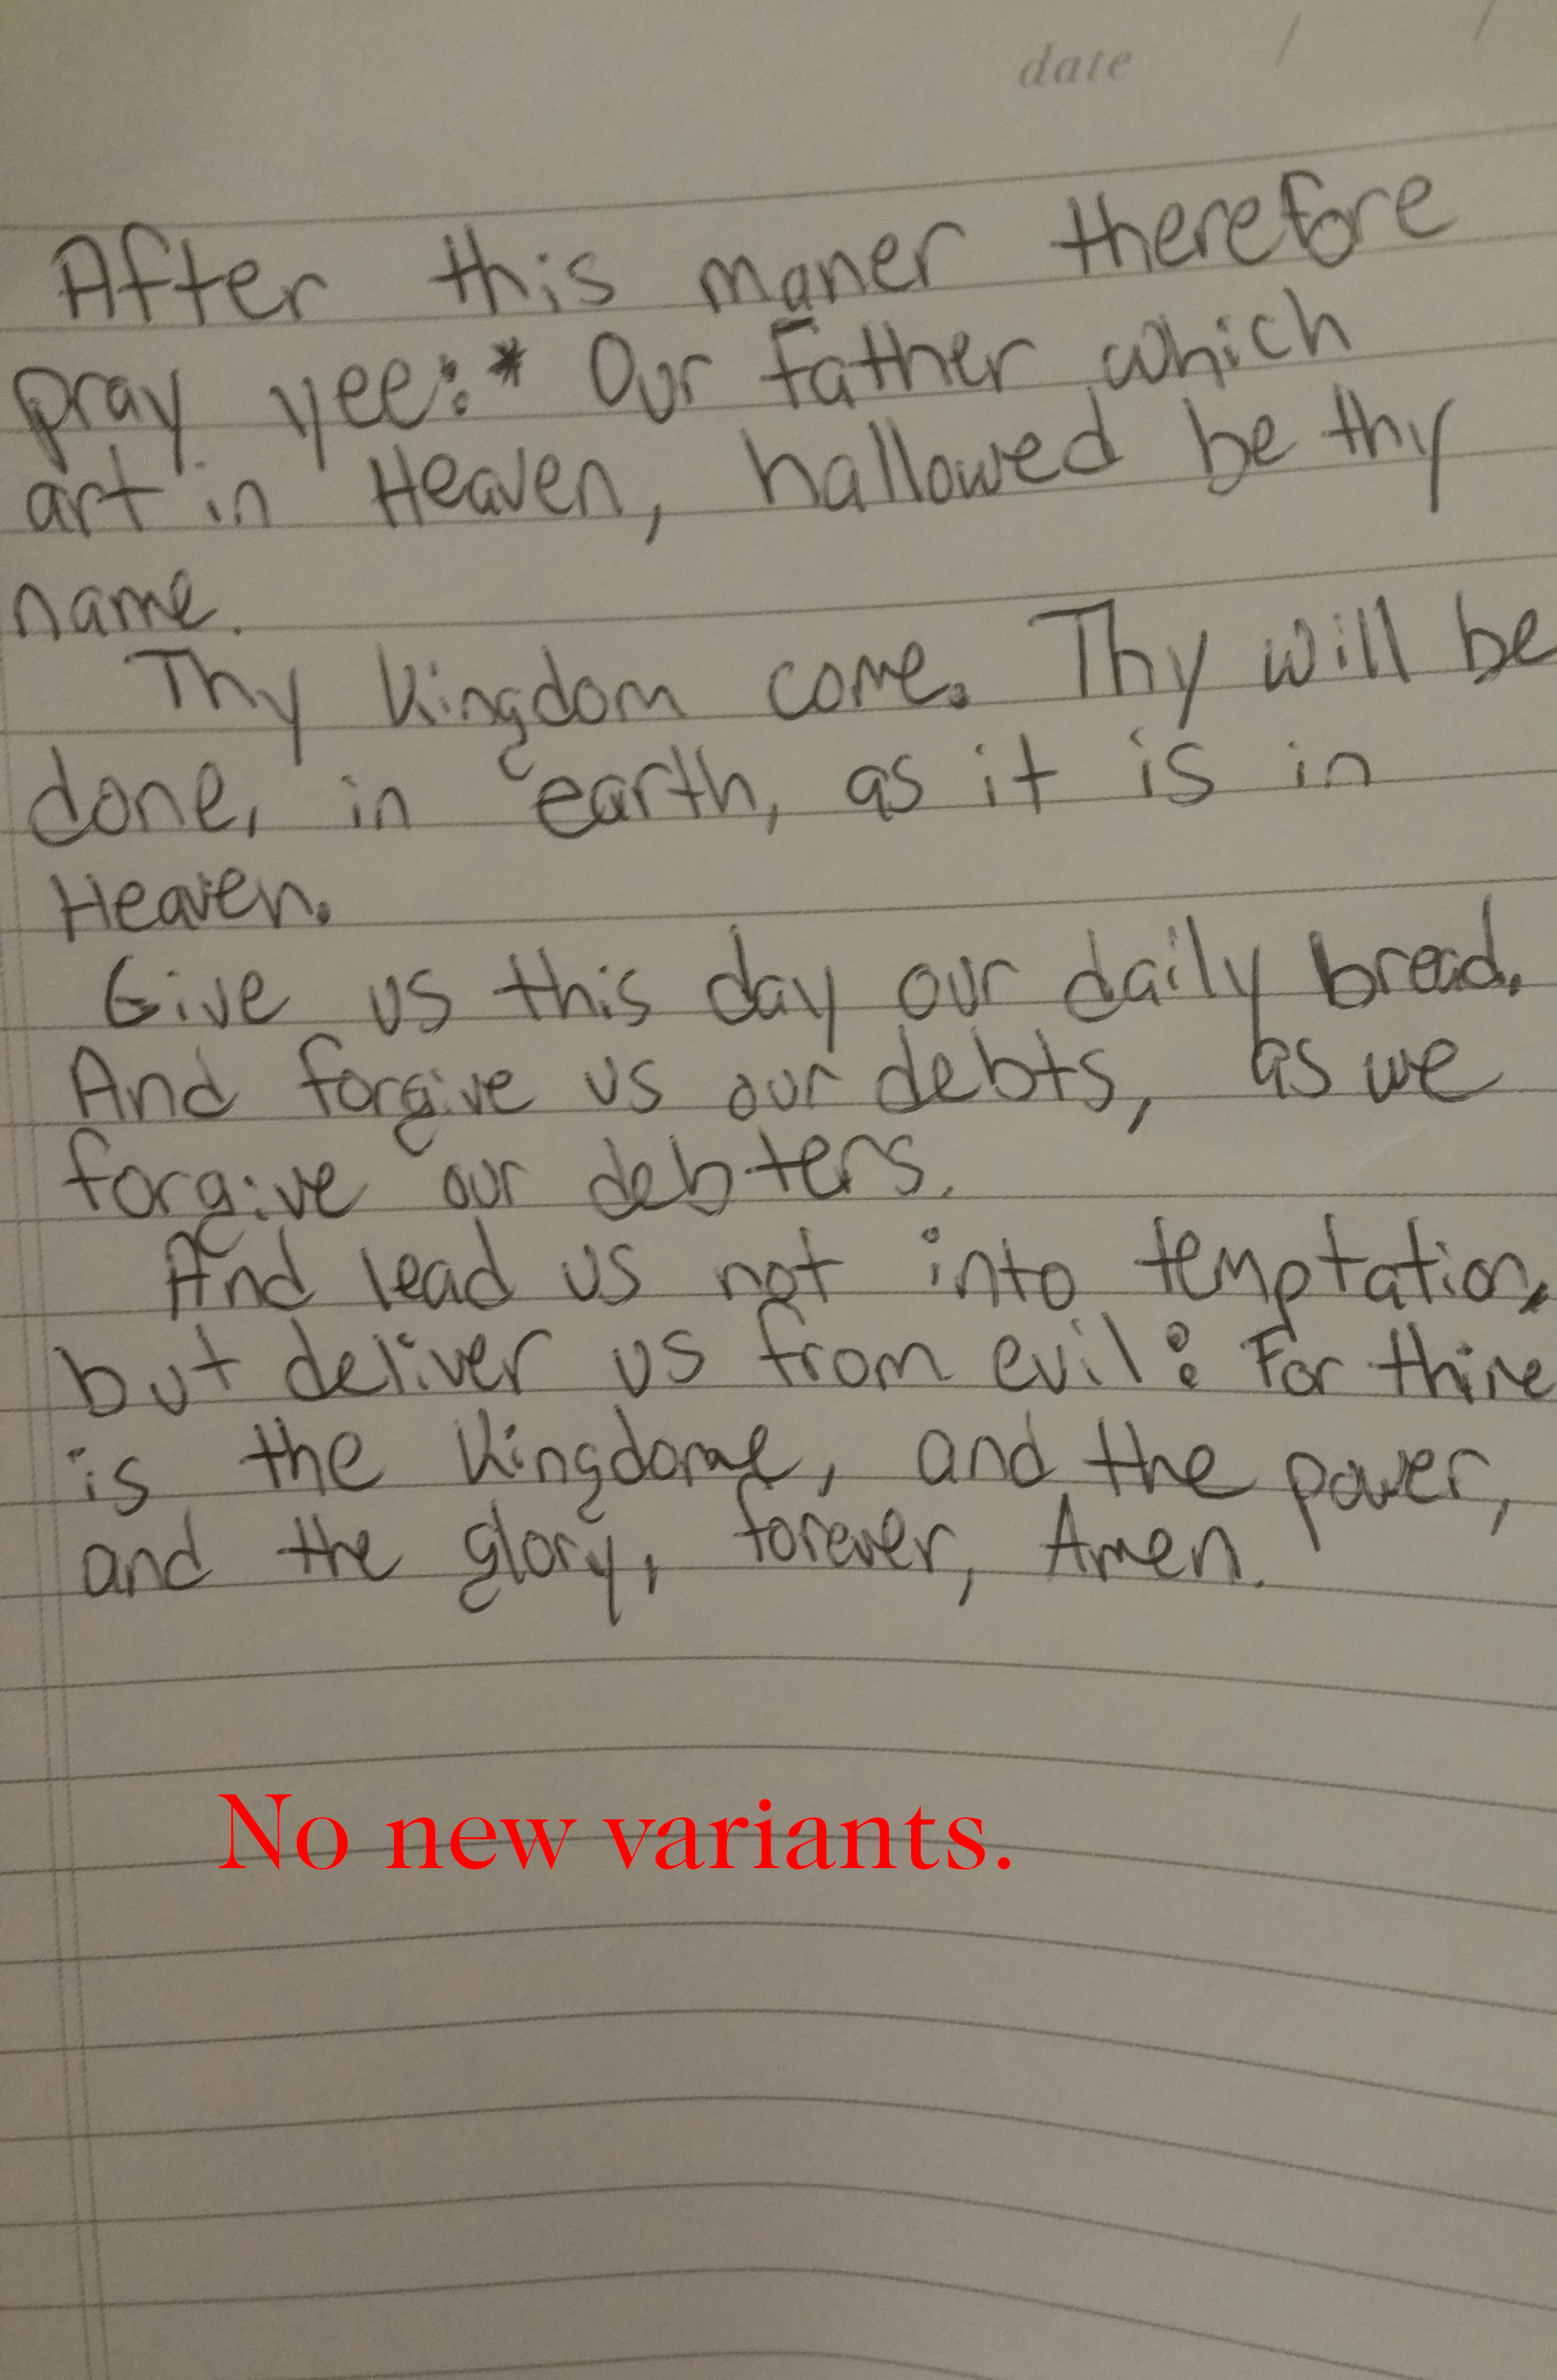 date / /
After this maner therefore
pray yee:* Our Father which
art in Heaven, hallowed be thy
name.
Thy kingdom come. Thy will be
done, in earth, as it is in
Heaven.
Give us this day our daily bread.
And forgive us our debts, as we
forgive our debters.
And lead us not into temptation,
but deliver us from evil: For thine
is the kingdome, and the power,
and the glory, forever, Amen.
No new variants.